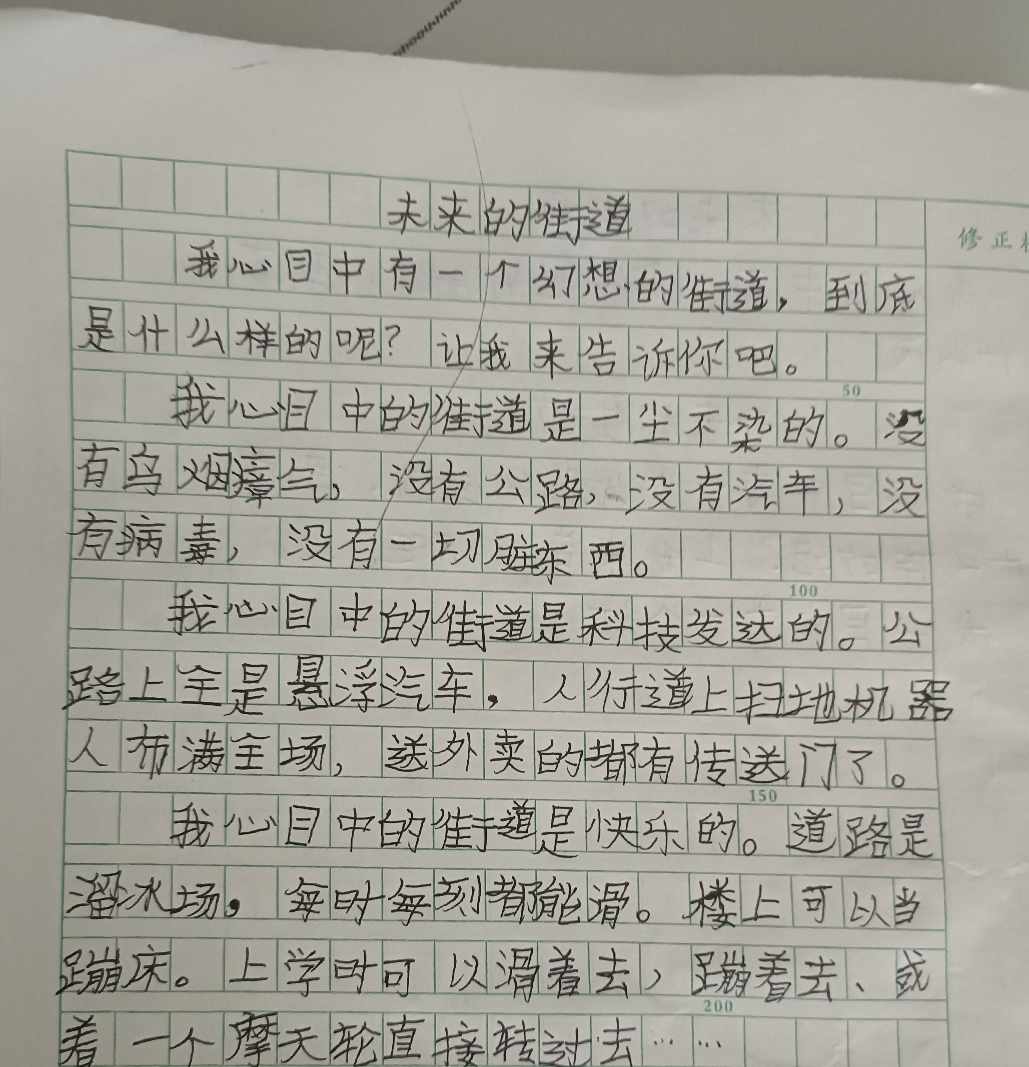 未来的街道
修正
我心目中有一个幻想的街道，到底
是什么样的呢？让我来告诉你吧。
50
我心目中的街道是一尘不染的。没
有乌烟瘴气，没有公路，没有汽车，没
有病毒，没有一切脏东西。
100
我心目中的街道是科技发达的。公
路上全是悬浮汽车，人行道上扫地机器
人布满全场，送外卖的都有传送门了。
150
我心目中的街道是快乐的。道路是
溜冰场，每时每刻都能滑。楼上可以当
蹦床。上学时可以滑着去，蹦着去、或
200
着一个摩天轮直接转过去……